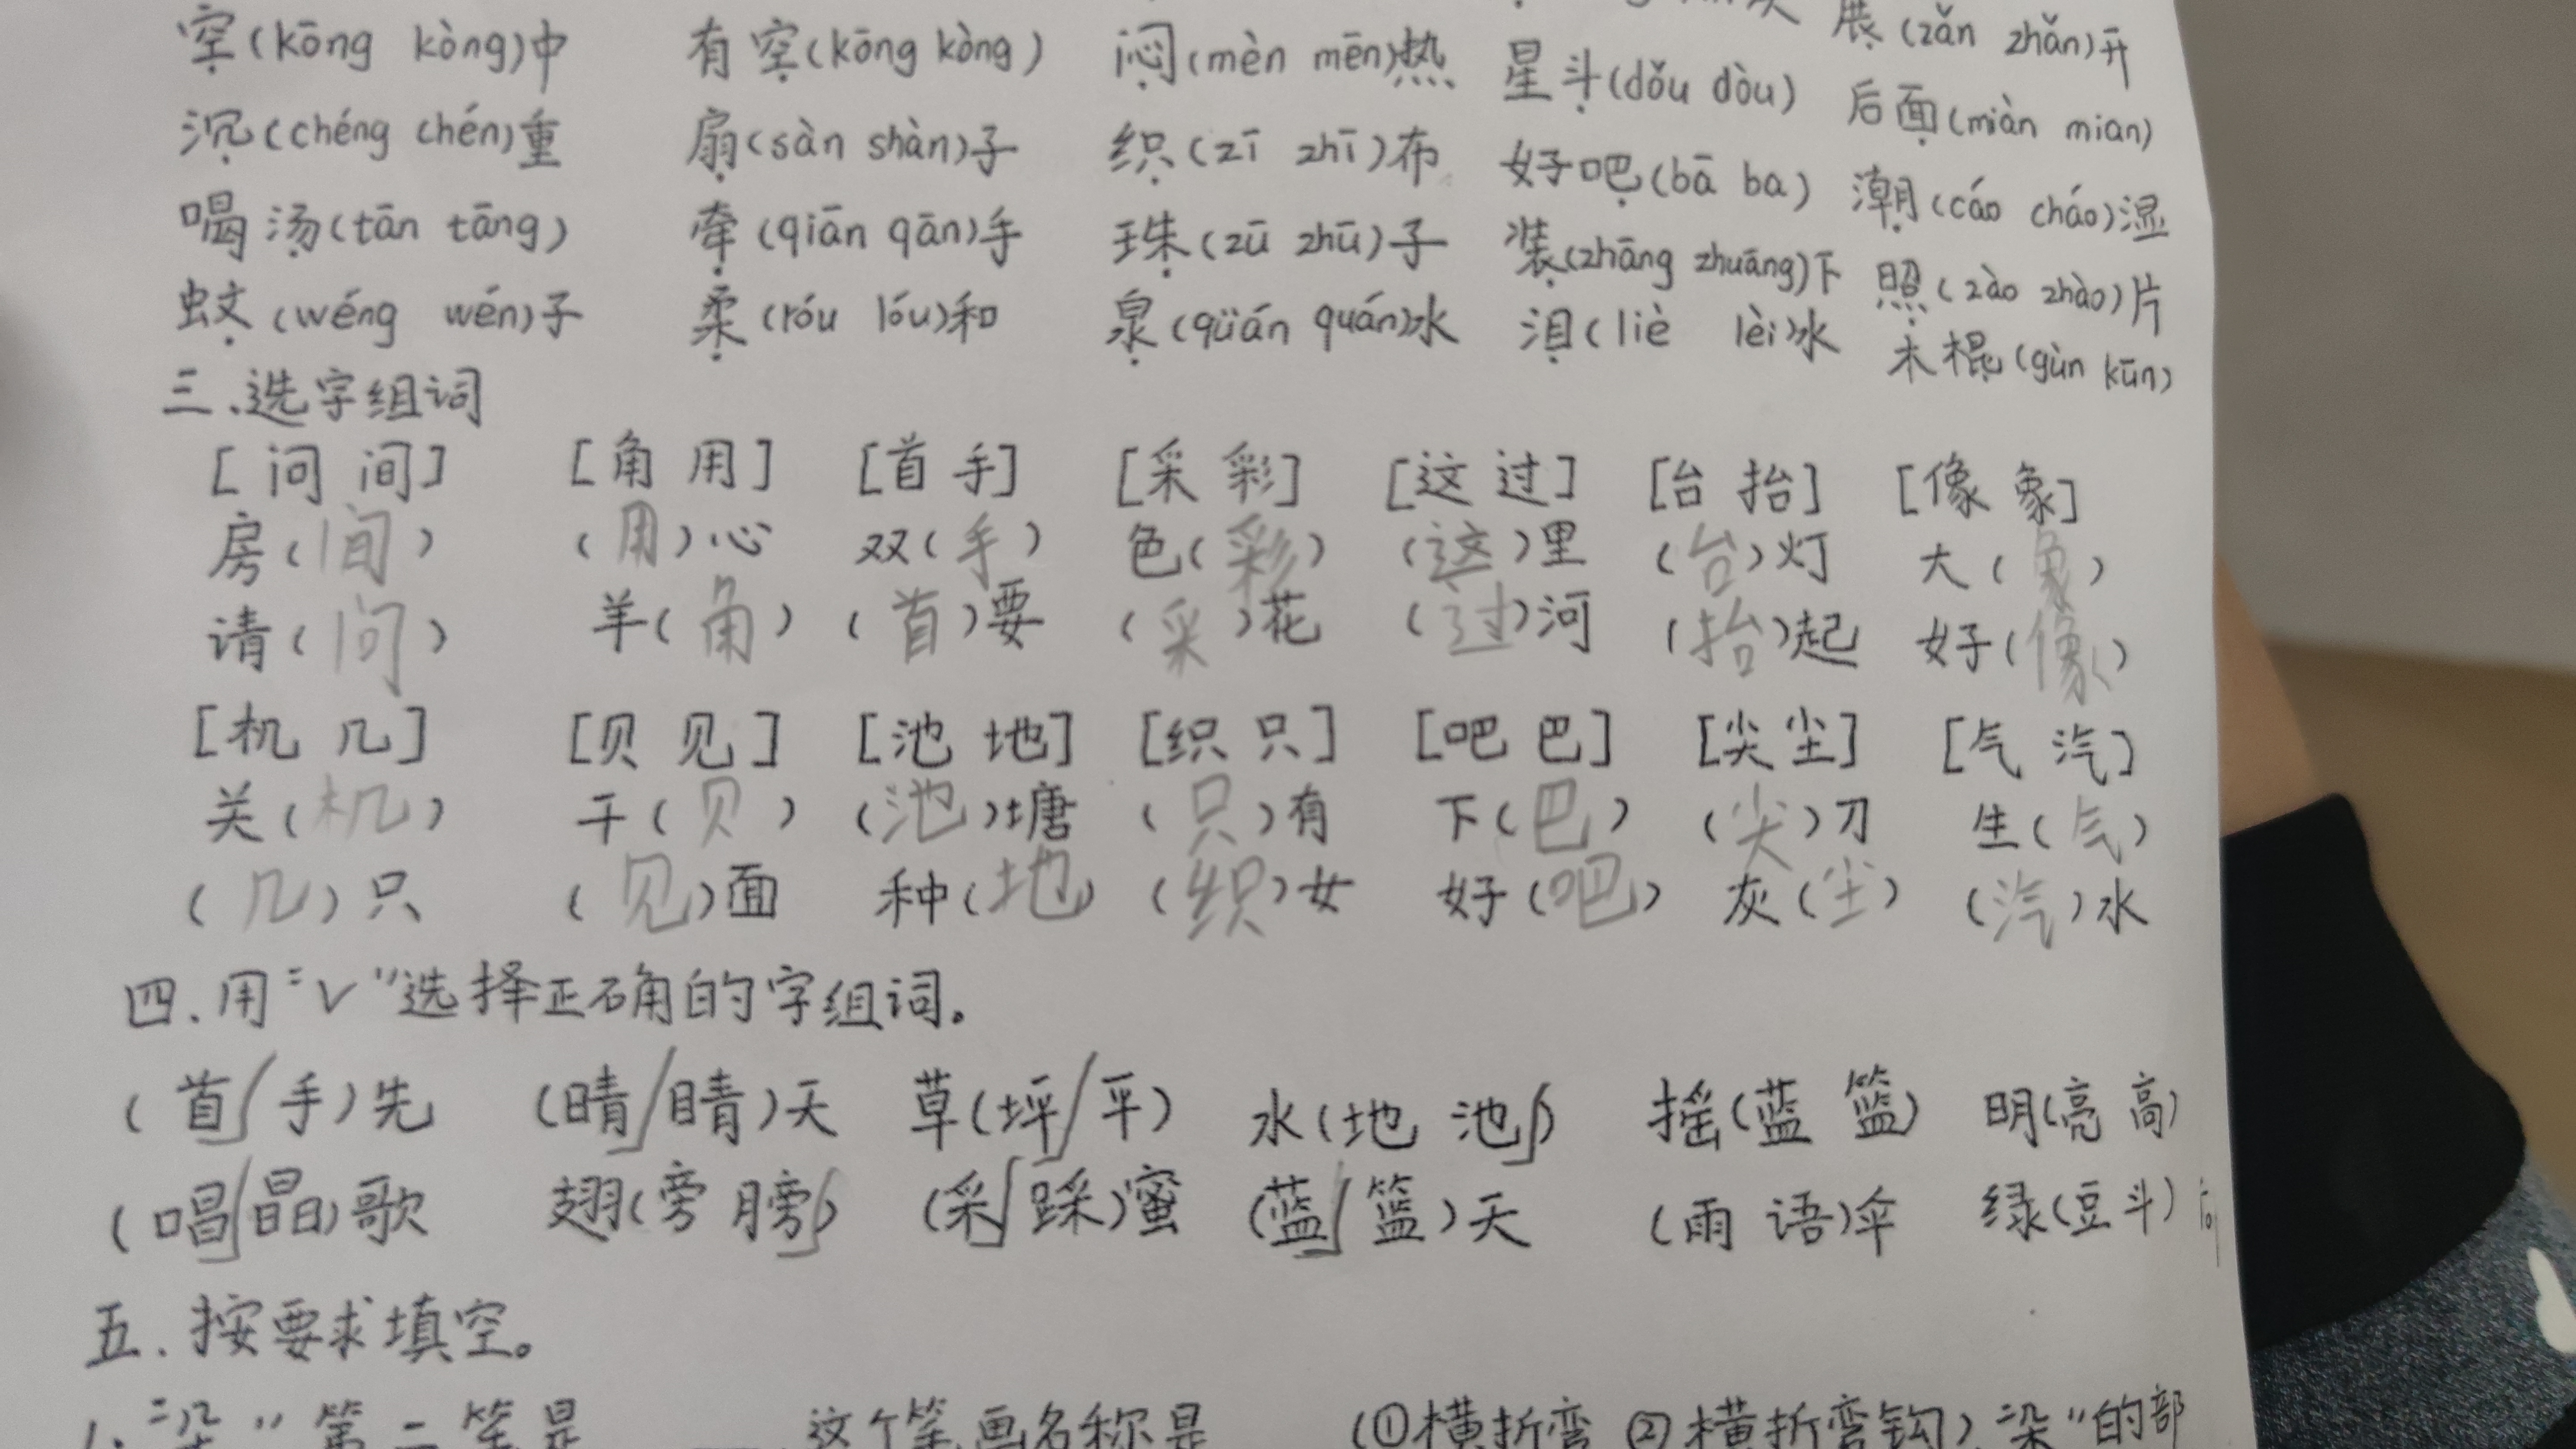 空(kōng kòng)中 有空(kōng kòng) 闷(mèn mēn)热 星斗(dǒu dòu) 展(zǎn zhǎn)开
沉(chéng chén)重 扇(sàn shàn)子 织(zī zhī)布 好吧(bā ba) 后面(miàn mian)
喝汤(tān tāng) 牵(qiān qān)手 珠(zū zhū)子 装(zhāng zhuāng)下 潮(cáo cháo)湿
蚊(wéng wén)子 柔(róu lóu)和 泉(qüán quán)水 泪(liè lèi)水 照(zào zhào)片
木棍(gùn kūn)
三.选字组词
[问 间] [角 用] [首 手] [采 彩] [这 过] [台 抬] [像 象]
房(间) (用)心 双(手) 色(彩) (这)里 (台)灯 大(象)
请(问) 羊(角) (首)要 (采)花 (过)河 (抬)起 好(像)
[机 几] [贝 见] [池 地] [织 只] [吧 巴] [尖 尘] [气 汽]
关(机) 干(贝) (池)塘 (只)有 下(巴) (尖)刀 生(气)
(几)只 (见)面 种(地) (织)女 好(吧) 灰(尘) (汽)水
四.用"√"选择正确的字组词。
(首√ 手)先 (晴√ 睛)天 草(坪√ 平) 水(地 池√) 摇(蓝 篮) 明(亮 高)
(唱√ 晶)歌 翅(旁 膀√) (采√ 踩)蜜 (蓝√ 篮)天 (雨 语)伞 绿(豆 斗)
五.按要求填空。
1."朵"第二笔是____这个笔画名称是 (①横折弯 ②横折弯钩),"朵"的部